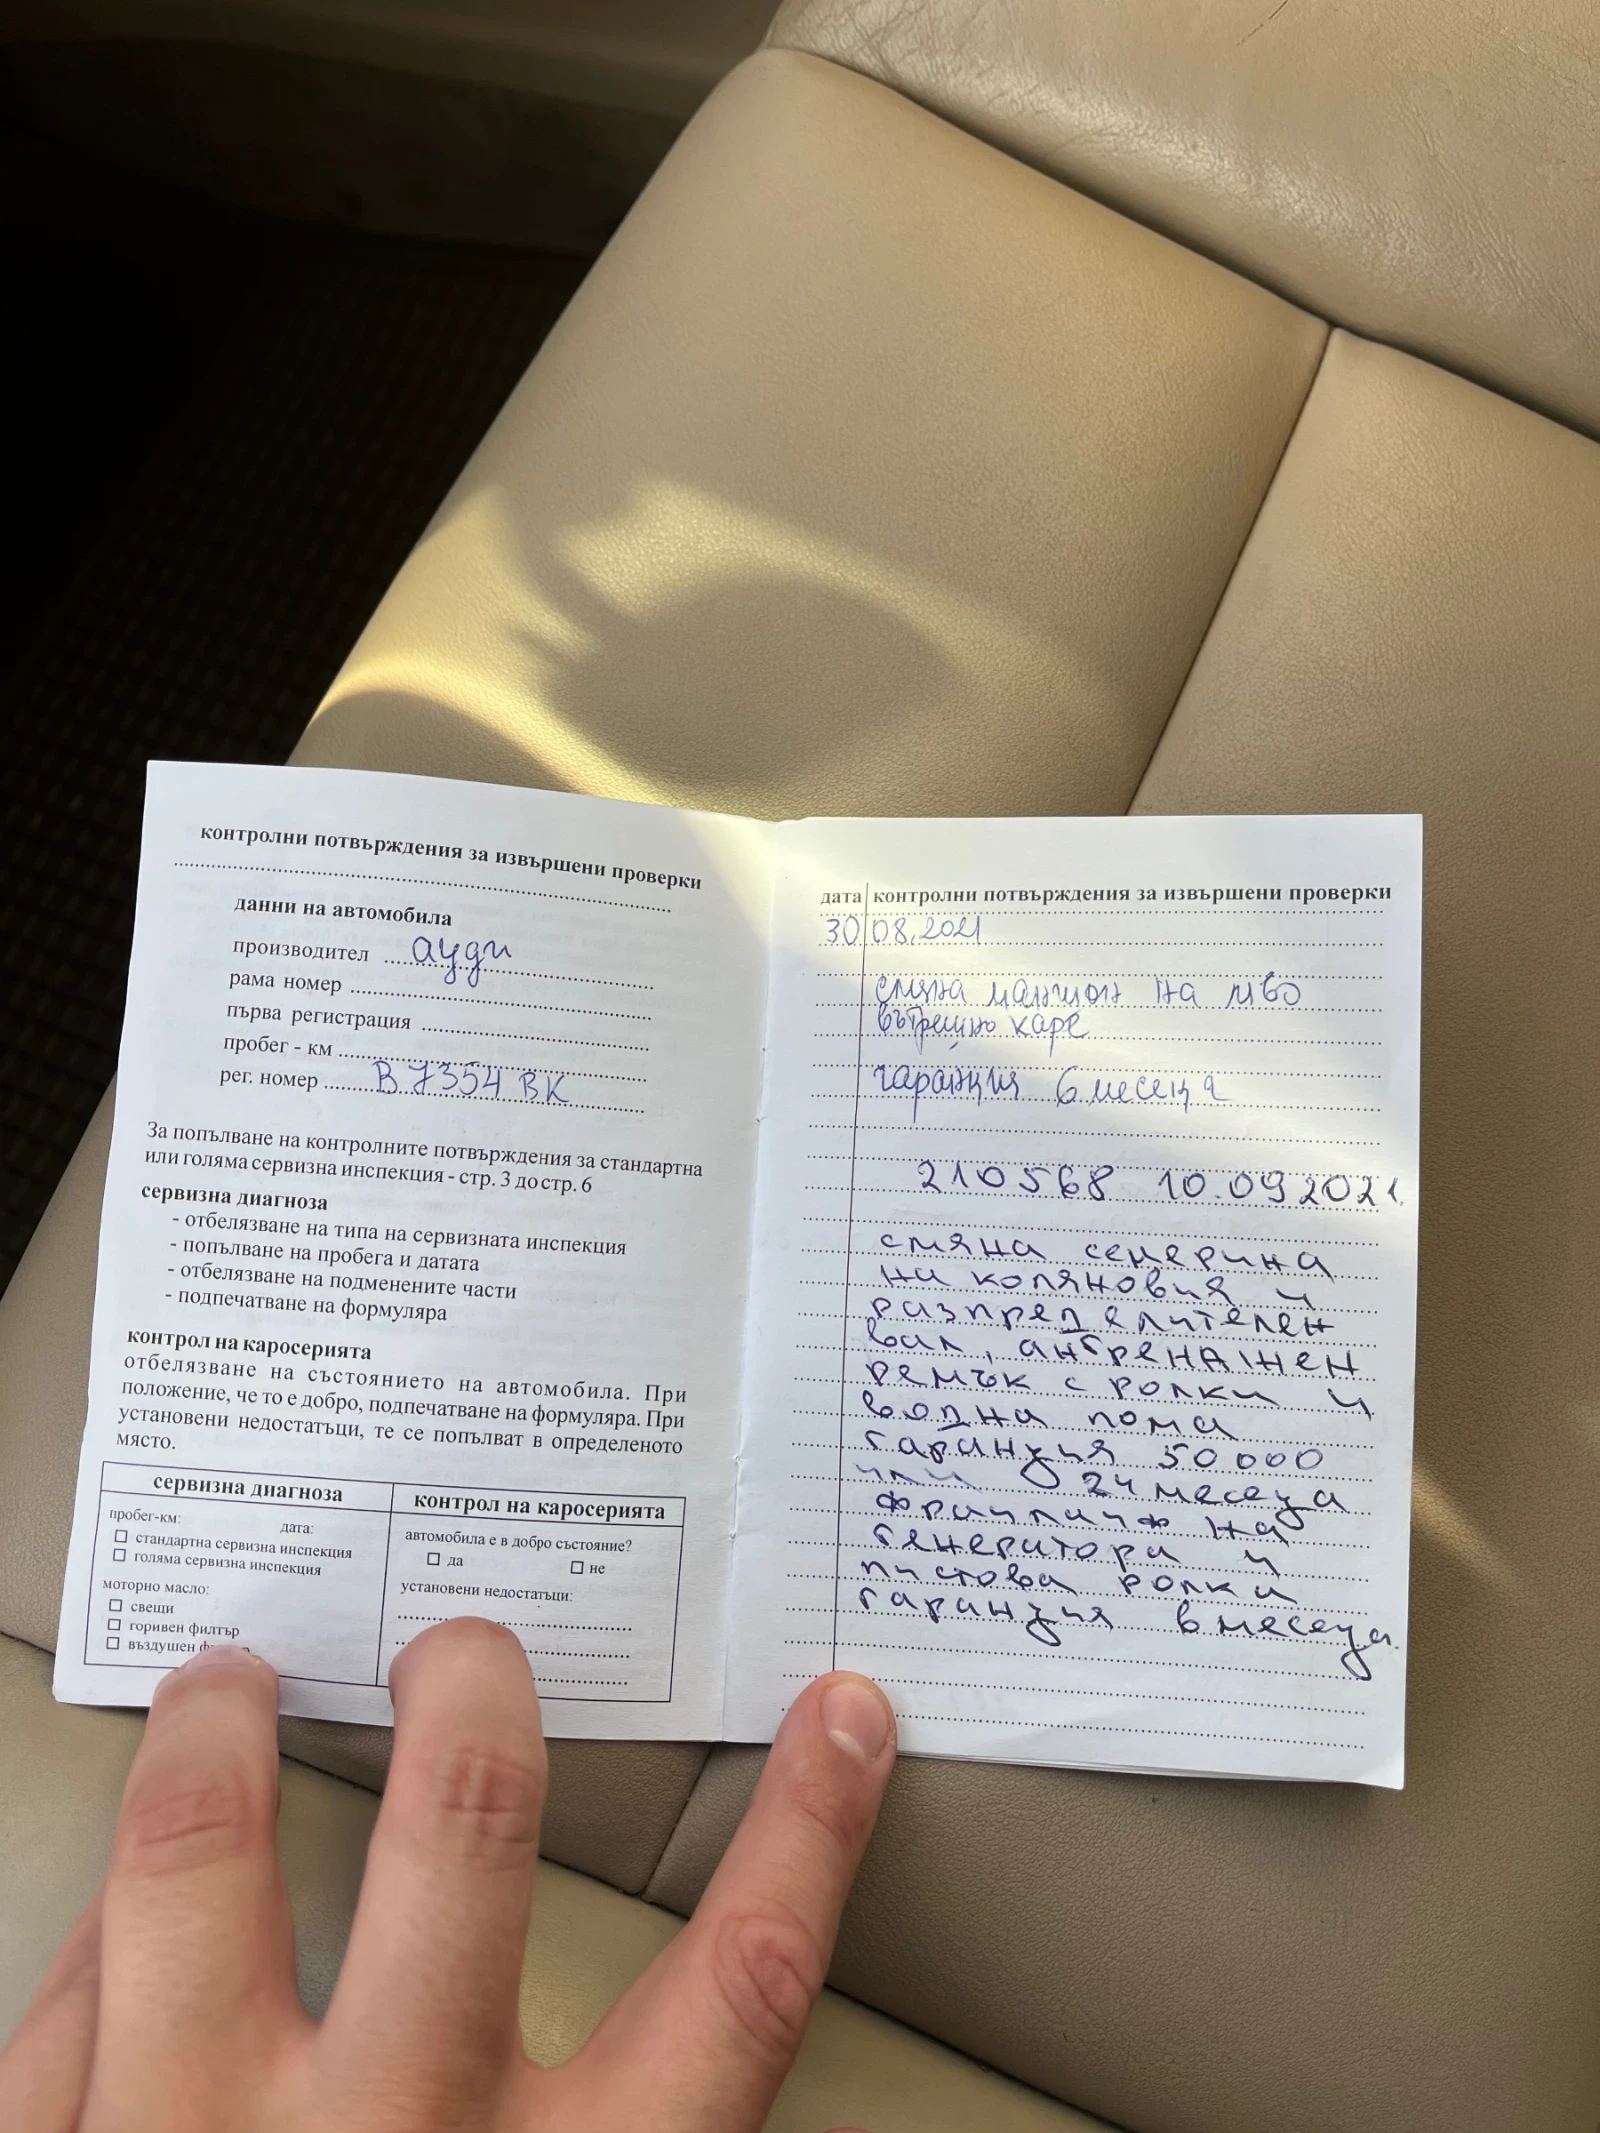 контролни потвърждения за извършени проверки
данни на автомобила
производител ауди
рама номер
първа регистрация
пробег - км
рег. номер В 7354 ВК
За попълване на контролните потвърждения за стандартна
или голяма сервизна инспекция - стр. 3 до стр. 6
сервизна диагноза
- отбелязване на типа на сервизната инспекция
- попълване на пробега и датата
- отбелязване на подменените части
- подпечатване на формуляра
контрол на каросерията
отбелязване на състоянието на автомобила. При
положение, че то е добро, подпечатване на формуляра. При
установени недостатъци, те се попълват в определеното
място.
сервизна диагноза
пробег-км: дата:
стандартна сервизна инспекция
голяма сервизна инспекция
моторно масло:
свещи
горивен филтър
въздушен
контрол на каросерията
автомобила е в добро състояние?
да не
установени недостатъци:
дата контролни потвърждения за извършени проверки
30 08.2021
смяна маншон на ляво
вътрешно каре
гаранция 6 месеца
210568 10.09 2021.
смяна семерина
на коляновия и
разпределителен
вал, ангренажен
ремък с ролки и
водна помa
гаранция 50 000
или 24 месеца
фрийлауф на
генератора и
пистова ролки
гаранция 6 месеца.